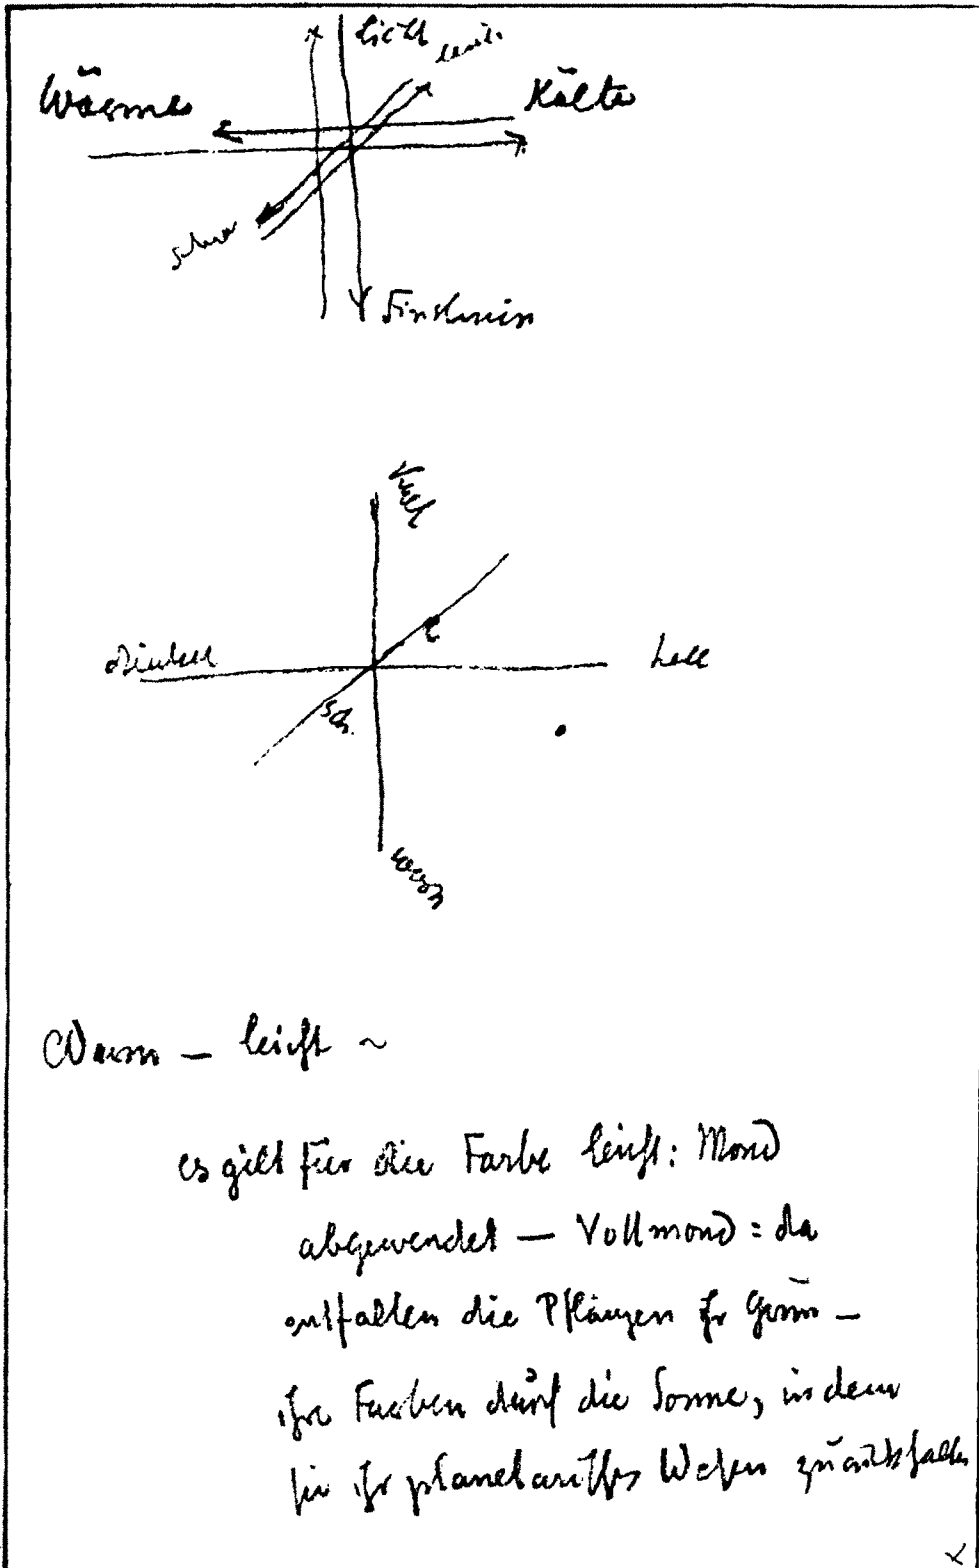 Licht
leicht
Wärme
Kälte
schwer
Finsternis
dunkel
l
hell
sch.
Warm — leicht ~
es gilt für die Farbe leicht: Mond
abgewendet — Vollmond: da
entfalten die Pflanzen ihr Grün —
ihre Farben durch die Sonne, indem
sie ihr planetarisches Wesen zurückhalten